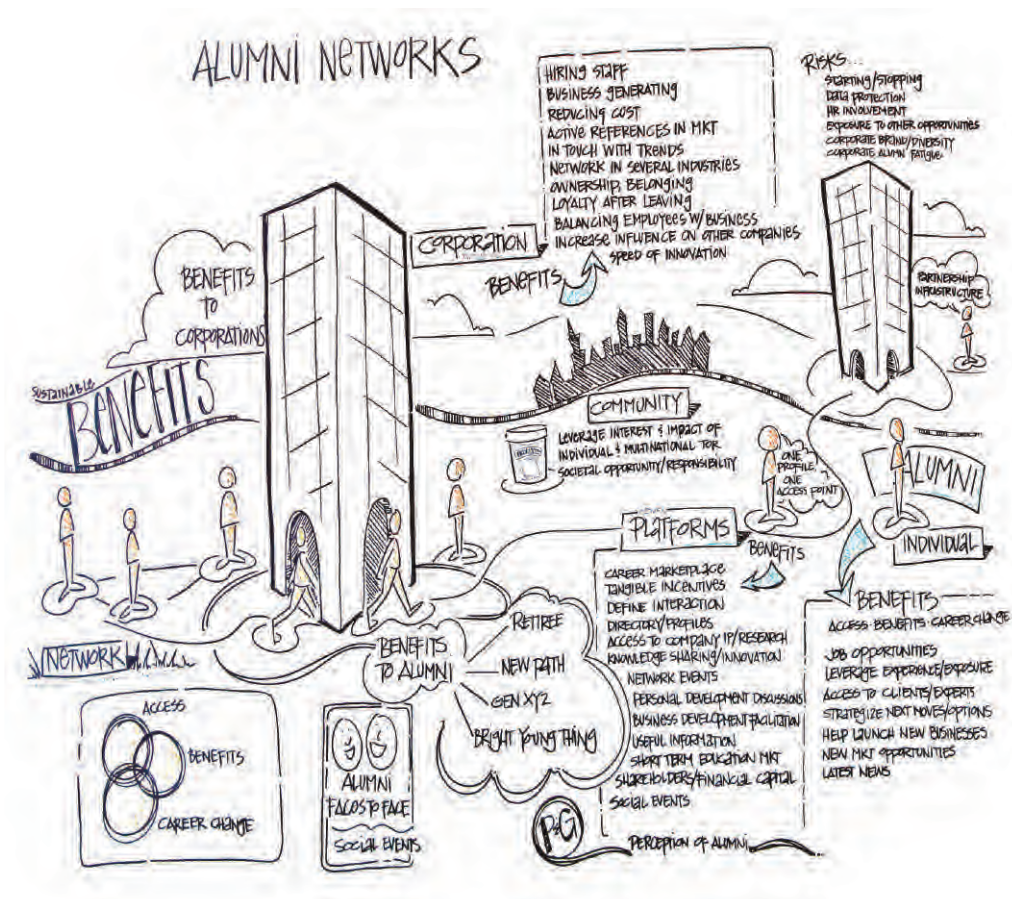 ALUMNI NETWORKS
HIRING STAFF
BUSINESS GENERATING
REDUCING COST
ACTIVE REFERENCES IN MKT
IN TOUCH WITH TRENDS
NETWORK IN SEVERAL INDUSTRIES
OWNERSHIP, BELONGING
LOYALTY AFTER LEAVING
BALANCING EMPLOYEES W/BUSINESS
INCREASE INFLUENCE ON OTHER COMPANIES
SPEED OF INNOVATION
CORPORATION
BENEFITS
RISKS...
STARTING/STOPPING
DATA PROTECTION
HR INVOLVEMENT
EXPOSURE TO OTHER OPPORTUNITIES
CORPORATE BRAND/DIVERSITY
CORPORATE ALUMNI FATIGUE
PARTNERSHIP
INFRASTRUCTURE
BENEFITS
TO
CORPORATIONS
SUSTAINABLE
BENEFITS
COMMUNITY
LEVERAGE INTEREST & IMPACT OF
INDIVIDUAL & MULTINATIONAL FOR
SOCIETAL OPPORTUNITY/RESPONSIBILITY
ONE
PROFILE,
ONE
ACCESS POINT
ALUMNI
INDIVIDUAL
PLATFORMS
BENEFITS
CAREER MARKETPLACE
TANGIBLE INCENTIVES
DEFINE INTERACTION
DIRECTORY/PROFILES
ACCESS TO COMPANY IP/RESEARCH
KNOWLEDGE SHARING/INNOVATION
NETWORK EVENTS
PERSONAL DEVELOPMENT DISCUSSIONS
BUSINESS DEVELOPMENT FACILITATION
USEFUL INFORMATION
SHORT TERM EDUCATION MKT
SHAREHOLDERS/FINANCIAL CAPITAL
SOCIAL EVENTS
PERCEPTION OF ALUMNI
P&G
BENEFITS
ACCESS·BENEFITS·CAREER CHANGE
JOB OPPORTUNITIES
LEVERAGE EXPERIENCE/EXPOSURE
ACCESS TO CLIENTS/EXPERTS
STRATEGIZE NEXT MOVES/OPTIONS
HELP LAUNCH NEW BUSINESSES
NEW MKT OPPORTUNITIES
LATEST NEWS
NETWORK
BENEFITS
TO ALUMNI
RETIREE
NEW PATH
GEN XYZ
BRIGHT YOUNG THING
ACCESS
BENEFITS
CAREER CHANGE
ALUMNI
FACES TO FACE
SOCIAL EVENTS